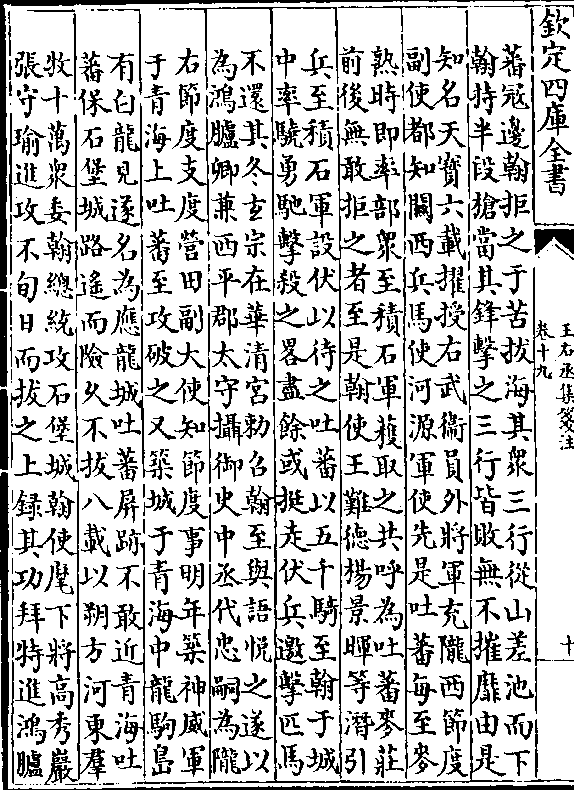 欽定四庫全書
王右丞集箋注
卷十九
十
蕃冦邊翰拒之于苦拔海其衆三行從山差池而下
翰持半段槍當其鋒擊之三行皆敗無不摧靡由是
知名天寳六載擢授右武衛員外將軍充隴西節度
副使都知關西兵馬使河源軍使先是吐蕃毎至麥
熟時即率部衆至積石軍穫取之共呼為吐蕃麥莊
前後無敢拒之者至是翰使王難德楊景暉等潛引
兵至積石軍設伏以待之吐蕃以五千騎至翰于城
中率驍勇馳擊殺之畧盡餘或挺走伏兵邀擊匹馬
不還其冬玄宗在華清宮勅召翰至與語悦之遂以
為鴻臚卿兼西平郡太守攝御史中丞代忠嗣為隴
右節度支度營田副大使知節度事明年築神威軍
于青海上吐蕃至攻破之又築城于青海中龍駒島
有白龍見遂名為應龍城吐蕃屏跡不敢近青海吐
蕃保石堡城路遙而險久不拔八載以朔方河東羣
牧十萬衆委翰總統攻石堡城翰使麾下將高秀巖
張守瑜進攻不旬日而拔之上録其功拜特進鴻臚